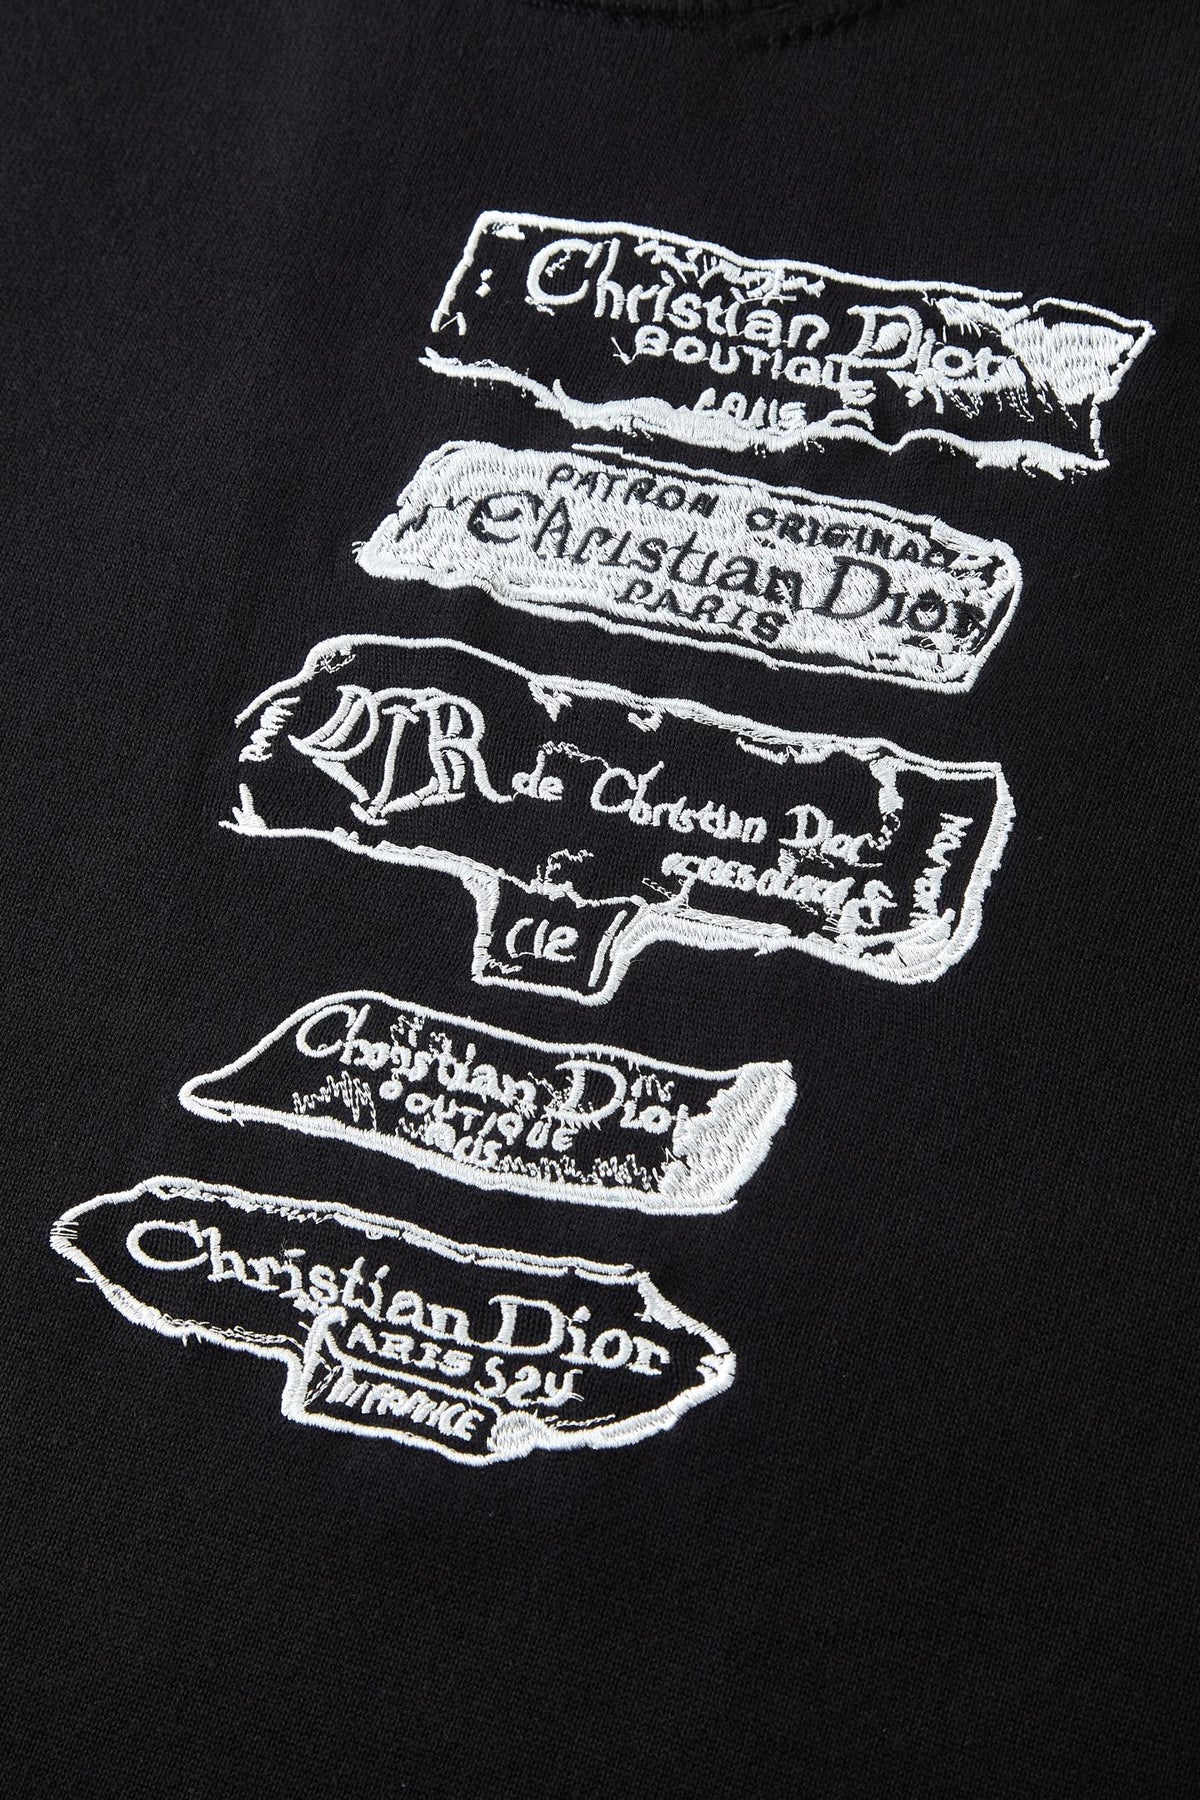 Christian Dior
BOUTIQUE
PATRON ORIGINAL
Christian Dior
PARIS
DIR
de Christian Dior
Christian Dior
BOUTIQUE
Christian Dior
PARIS S24
FRANCE